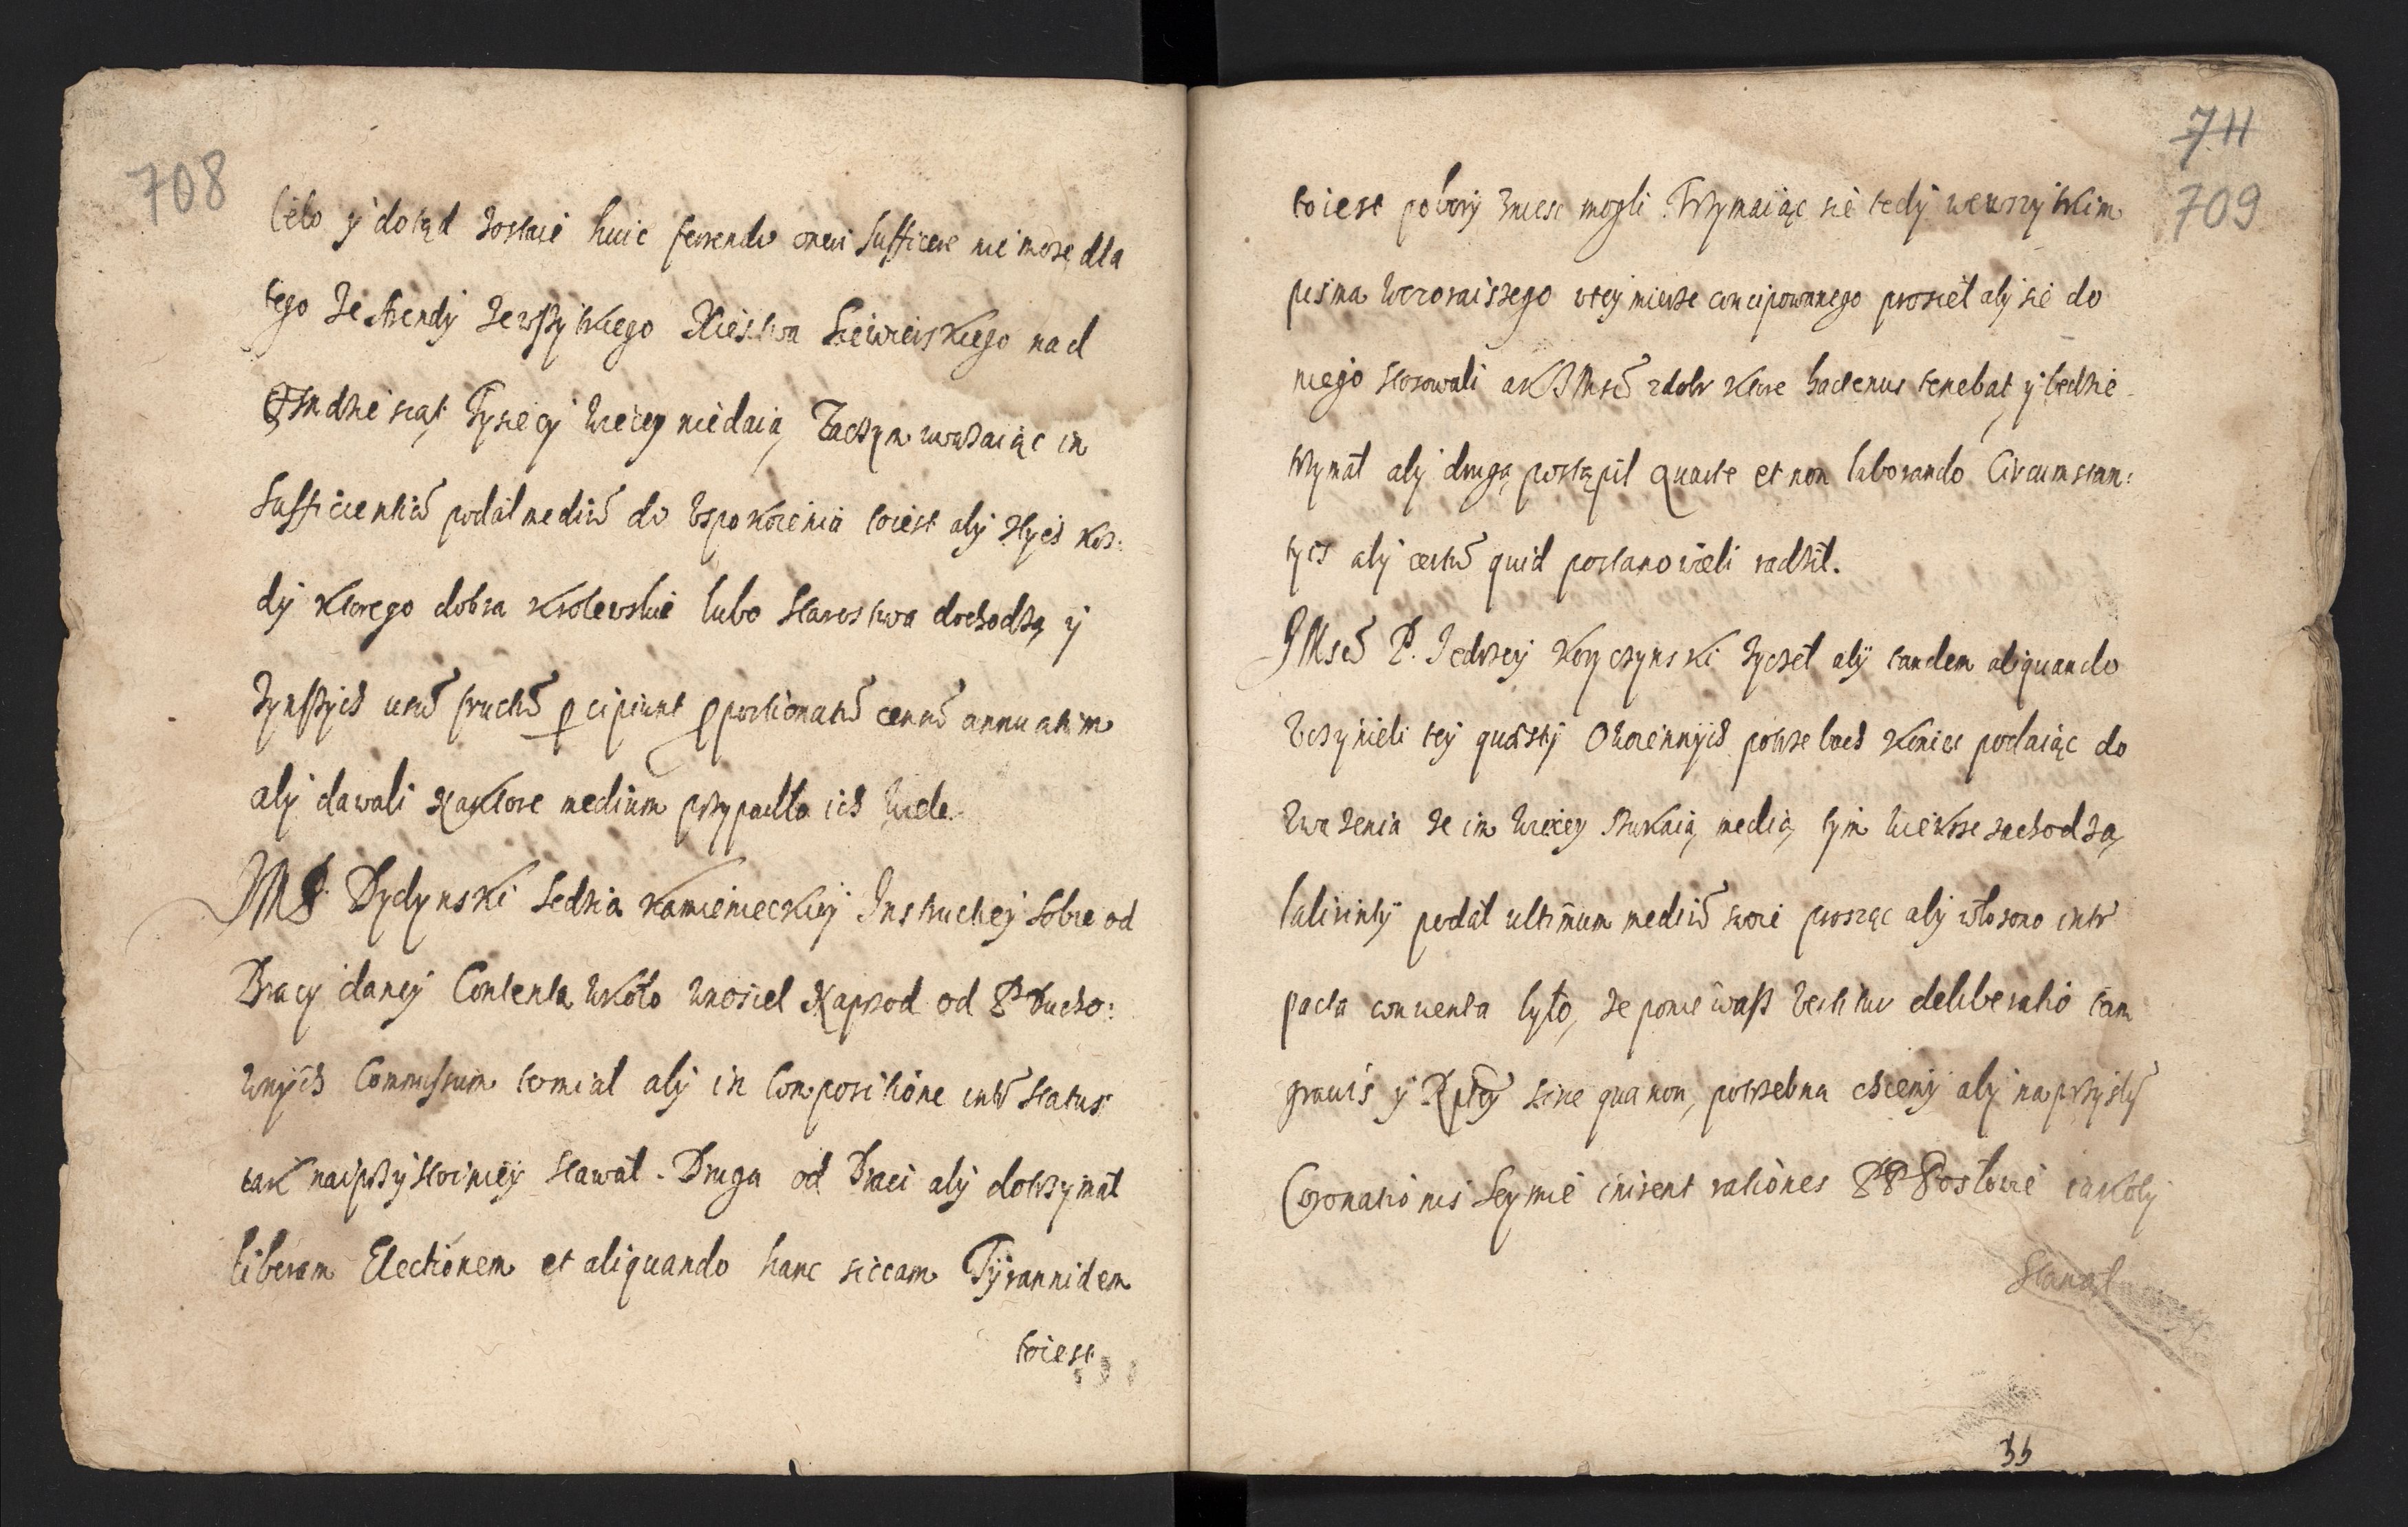 708
było y dotąd zostaie huic ferendo oneri sufficere nie może dla
tego że Arendy ze wszytkiego Xięstwa Siewierskiego nad
trzydzieści Tysięcy więcey niedaią, Zaczym uważaiąc in
sufficientiũ podał mediũ do uspokoienia toiest aby z tych kaz:
dy ktorego dobra krolewskie lubo starostwa dochodzą y
z ynszych usũ fructũ percipiunt proportionatũ censũ annuatim
aby dawali na ktore medium przypadło ich wiele.
JMP. Dydynski Sedzia Kamienieckiy Instructiey sobie od
Braci daney Contenta wkoło wnosiel Naprzod od PP Ducho:
wnych Commissum to miał aby in Compositione intr status
iak naiprzystoiniey stawał. Druga od Braci aby dotrzymał
liberam Electionem et aliquando hanc siccam Tyrannidem
toiest
711
709
toiest pobory znieść mogli. Trzymaiąc sie tedy we wszytkim
pisma wczoraiszego wtey mierze concipowanego prosieł aby sie do
niego stosowali a KJMsc z dobr ktore hactenus tenebat y bedzie
trzymał aby drugą postąpił Quarte et non laborando Circumstan:
tyis aby certũ quid postanowieli radził.
JMsc P. Jedrzey Koryczynski życzeł aby tandem aliquando
uczynieli tey quæstiy Okoiennych potrzebach koniec podaiąc do
uważenia że im więcey szukaią media, tym wiekrze zachodzą
labirinty podał ultimum mediũ swoie prosząc aby włożono intr
pacta conventa było, że poniewasz vertitur deliberatio tam
gravis y Rptey sine qua non, potrzebna chcemy aby na przyszłỹ
Coronationis Seymie inirent rationes PP Posłowie iakoby
Stanąl